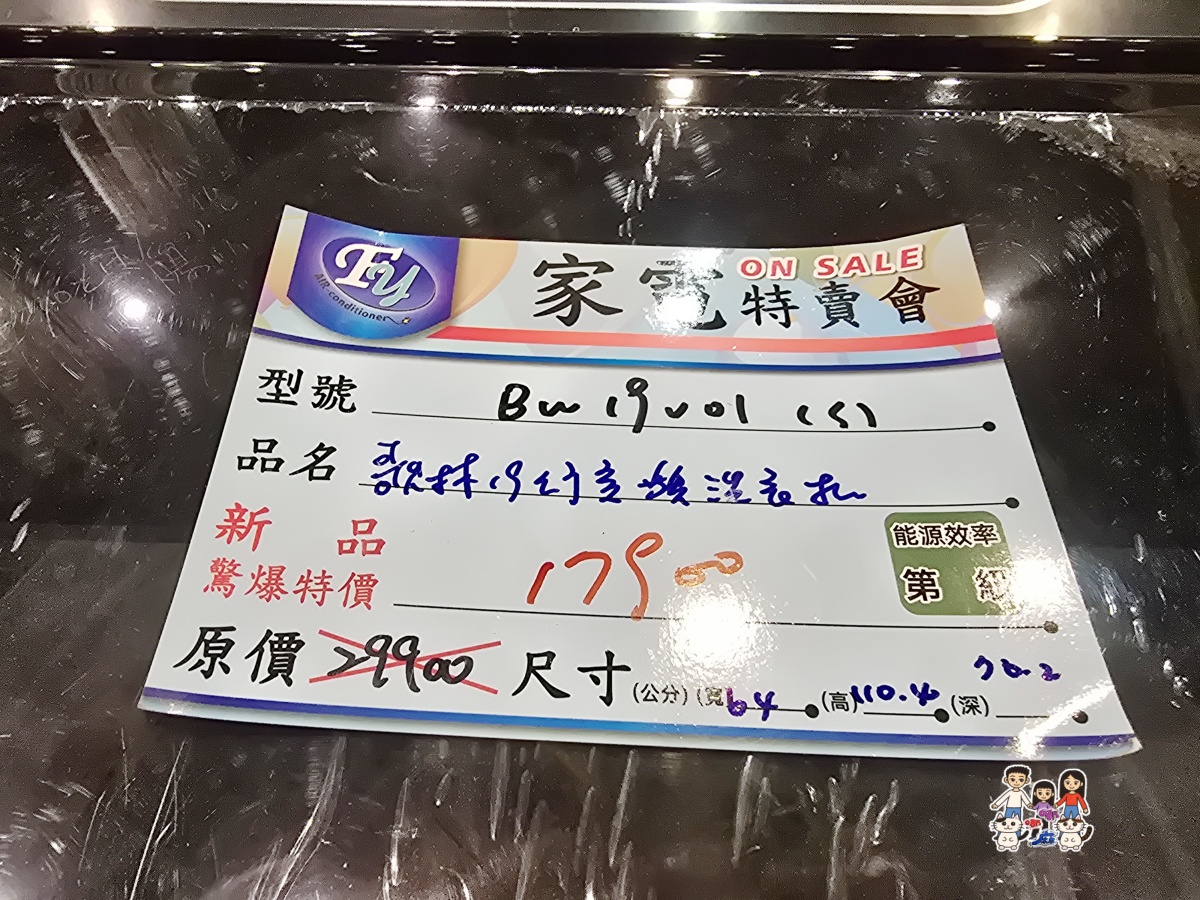 Ty
AIR-conditioner
ON SALE
家電特賣會
型號 BW19V01 (S)
品名 歌林19公斤變頻洗衣機
新品
驚爆特價 17900
能源效率
第 級
原價 29900 尺寸(公分)(寬)64 (高)110.4 (深)70.2